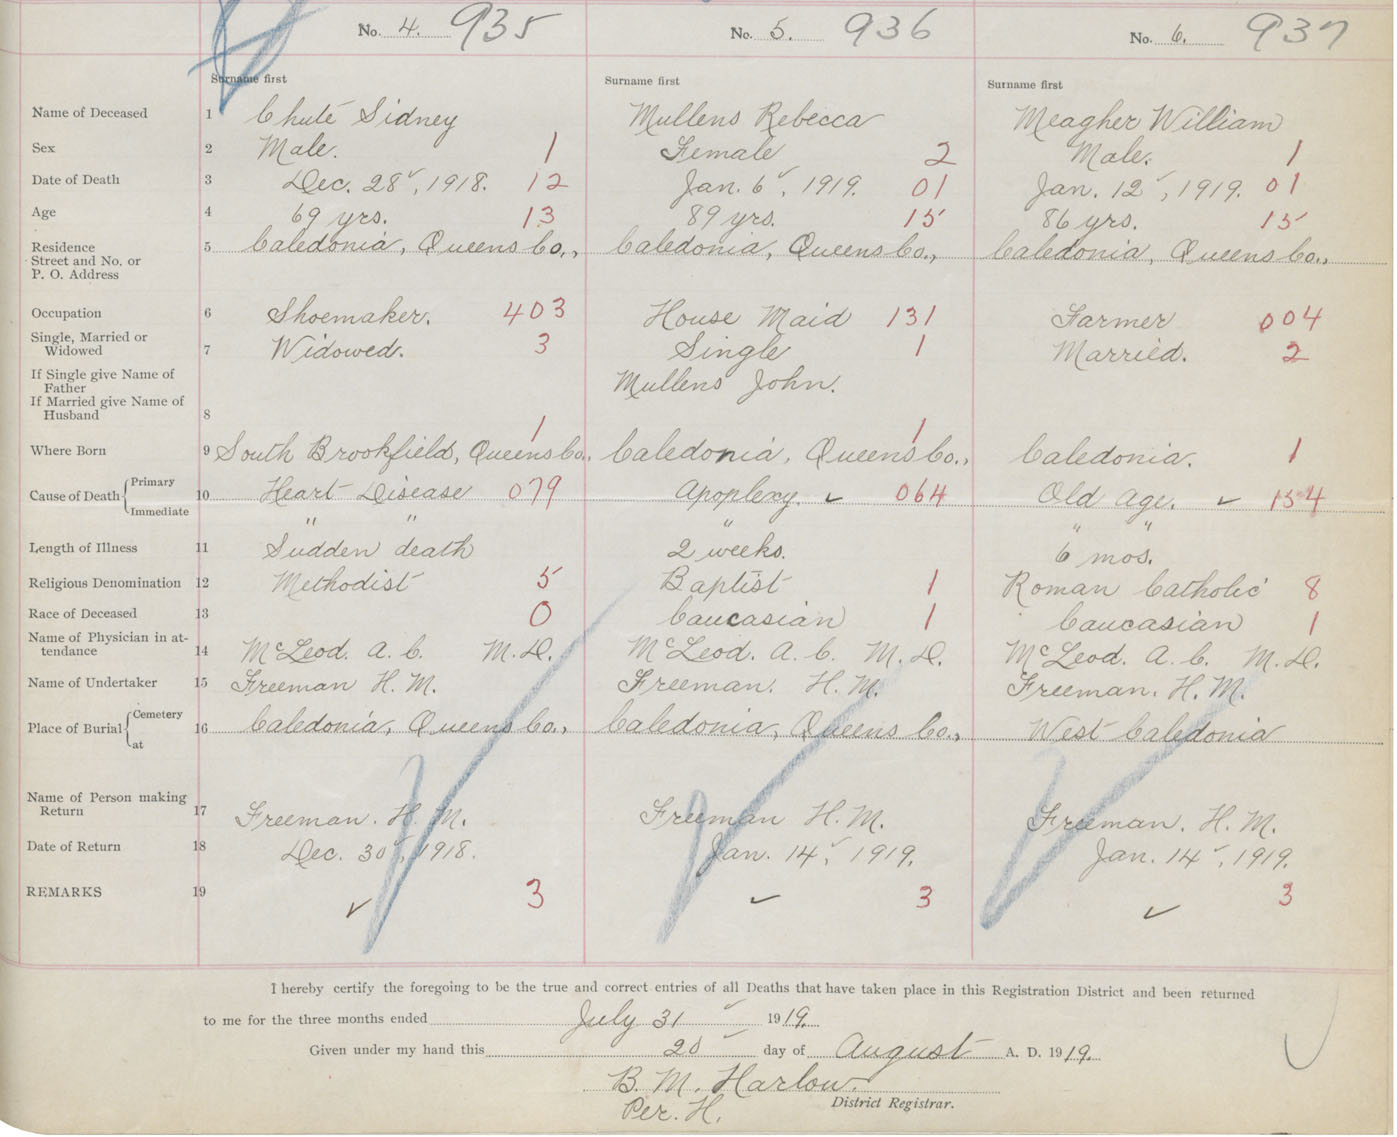 No. 4. 935 No. 5. 936 No. 6. 937
Surname first Surname first Surname first
Name of Deceased 1 Chute Sidney Mullens Rebecca Meagher William
Sex 2 Male. 1 Female 2 Male. 1
Date of Death 3 Dec. 28, 1918. 12 Jan. 6, 1919. 01 Jan. 12, 1919. 01
Age 4 69 yrs. 13 89 yrs. 15 86 yrs. 15
Residence 5 Caledonia, Queens Co., Caledonia, Queens Co., Caledonia, Queens Co.,
Street and No. or
P. O. Address
Occupation 6 Shoemaker. 403 House Maid 131 Farmer 004
Single, Married or
Widowed 7 Widowed. 3 Single 1 Married. 2
If Single give Name of
Father Mullens John.
If Married give Name of
Husband 8
1 1
Where Born 9 South Brookfield, Queens Co. Caledonia, Queens Co., Caledonia. 1
Cause of Death { Primary
10 Heart Disease 079 Apoplexy. ✓ 064 Old Age. ✓ 154
Immediate " " " " "
Length of Illness 11 Sudden death 2 weeks. 6 mos.
Religious Denomination 12 Methodist 5 Baptist 1 Roman Catholic 8
Race of Deceased 13 0 Caucasian 1 Caucasian 1
Name of Physician in at-
tendance 14 McLeod. A. C. M.D. McLeod. A. C. M.D. McLeod. A. C. M.D.
Name of Undertaker 15 Freeman H. M. Freeman. H. M. Freeman. H. M.
Place of Burial { Cemetery
16 Caledonia, Queens Co., Caledonia, Queens Co., West Caledonia
at
Name of Person making
Return 17 Freeman. H. M. Freeman H. M. Freeman. H. M.
Date of Return 18 Dec. 30, 1918. Jan. 14, 1919. Jan. 14, 1919.
REMARKS 19 ✓ 3 ✓ 3 ✓ 3
I hereby certify the foregoing to be the true and correct entries of all Deaths that have taken place in this Registration District and been returned
to me for the three months ended July 31 1919.
Given under my hand this 20 day of August A. D. 1919.
B. M. Harlow.
Per. H. District Registrar.